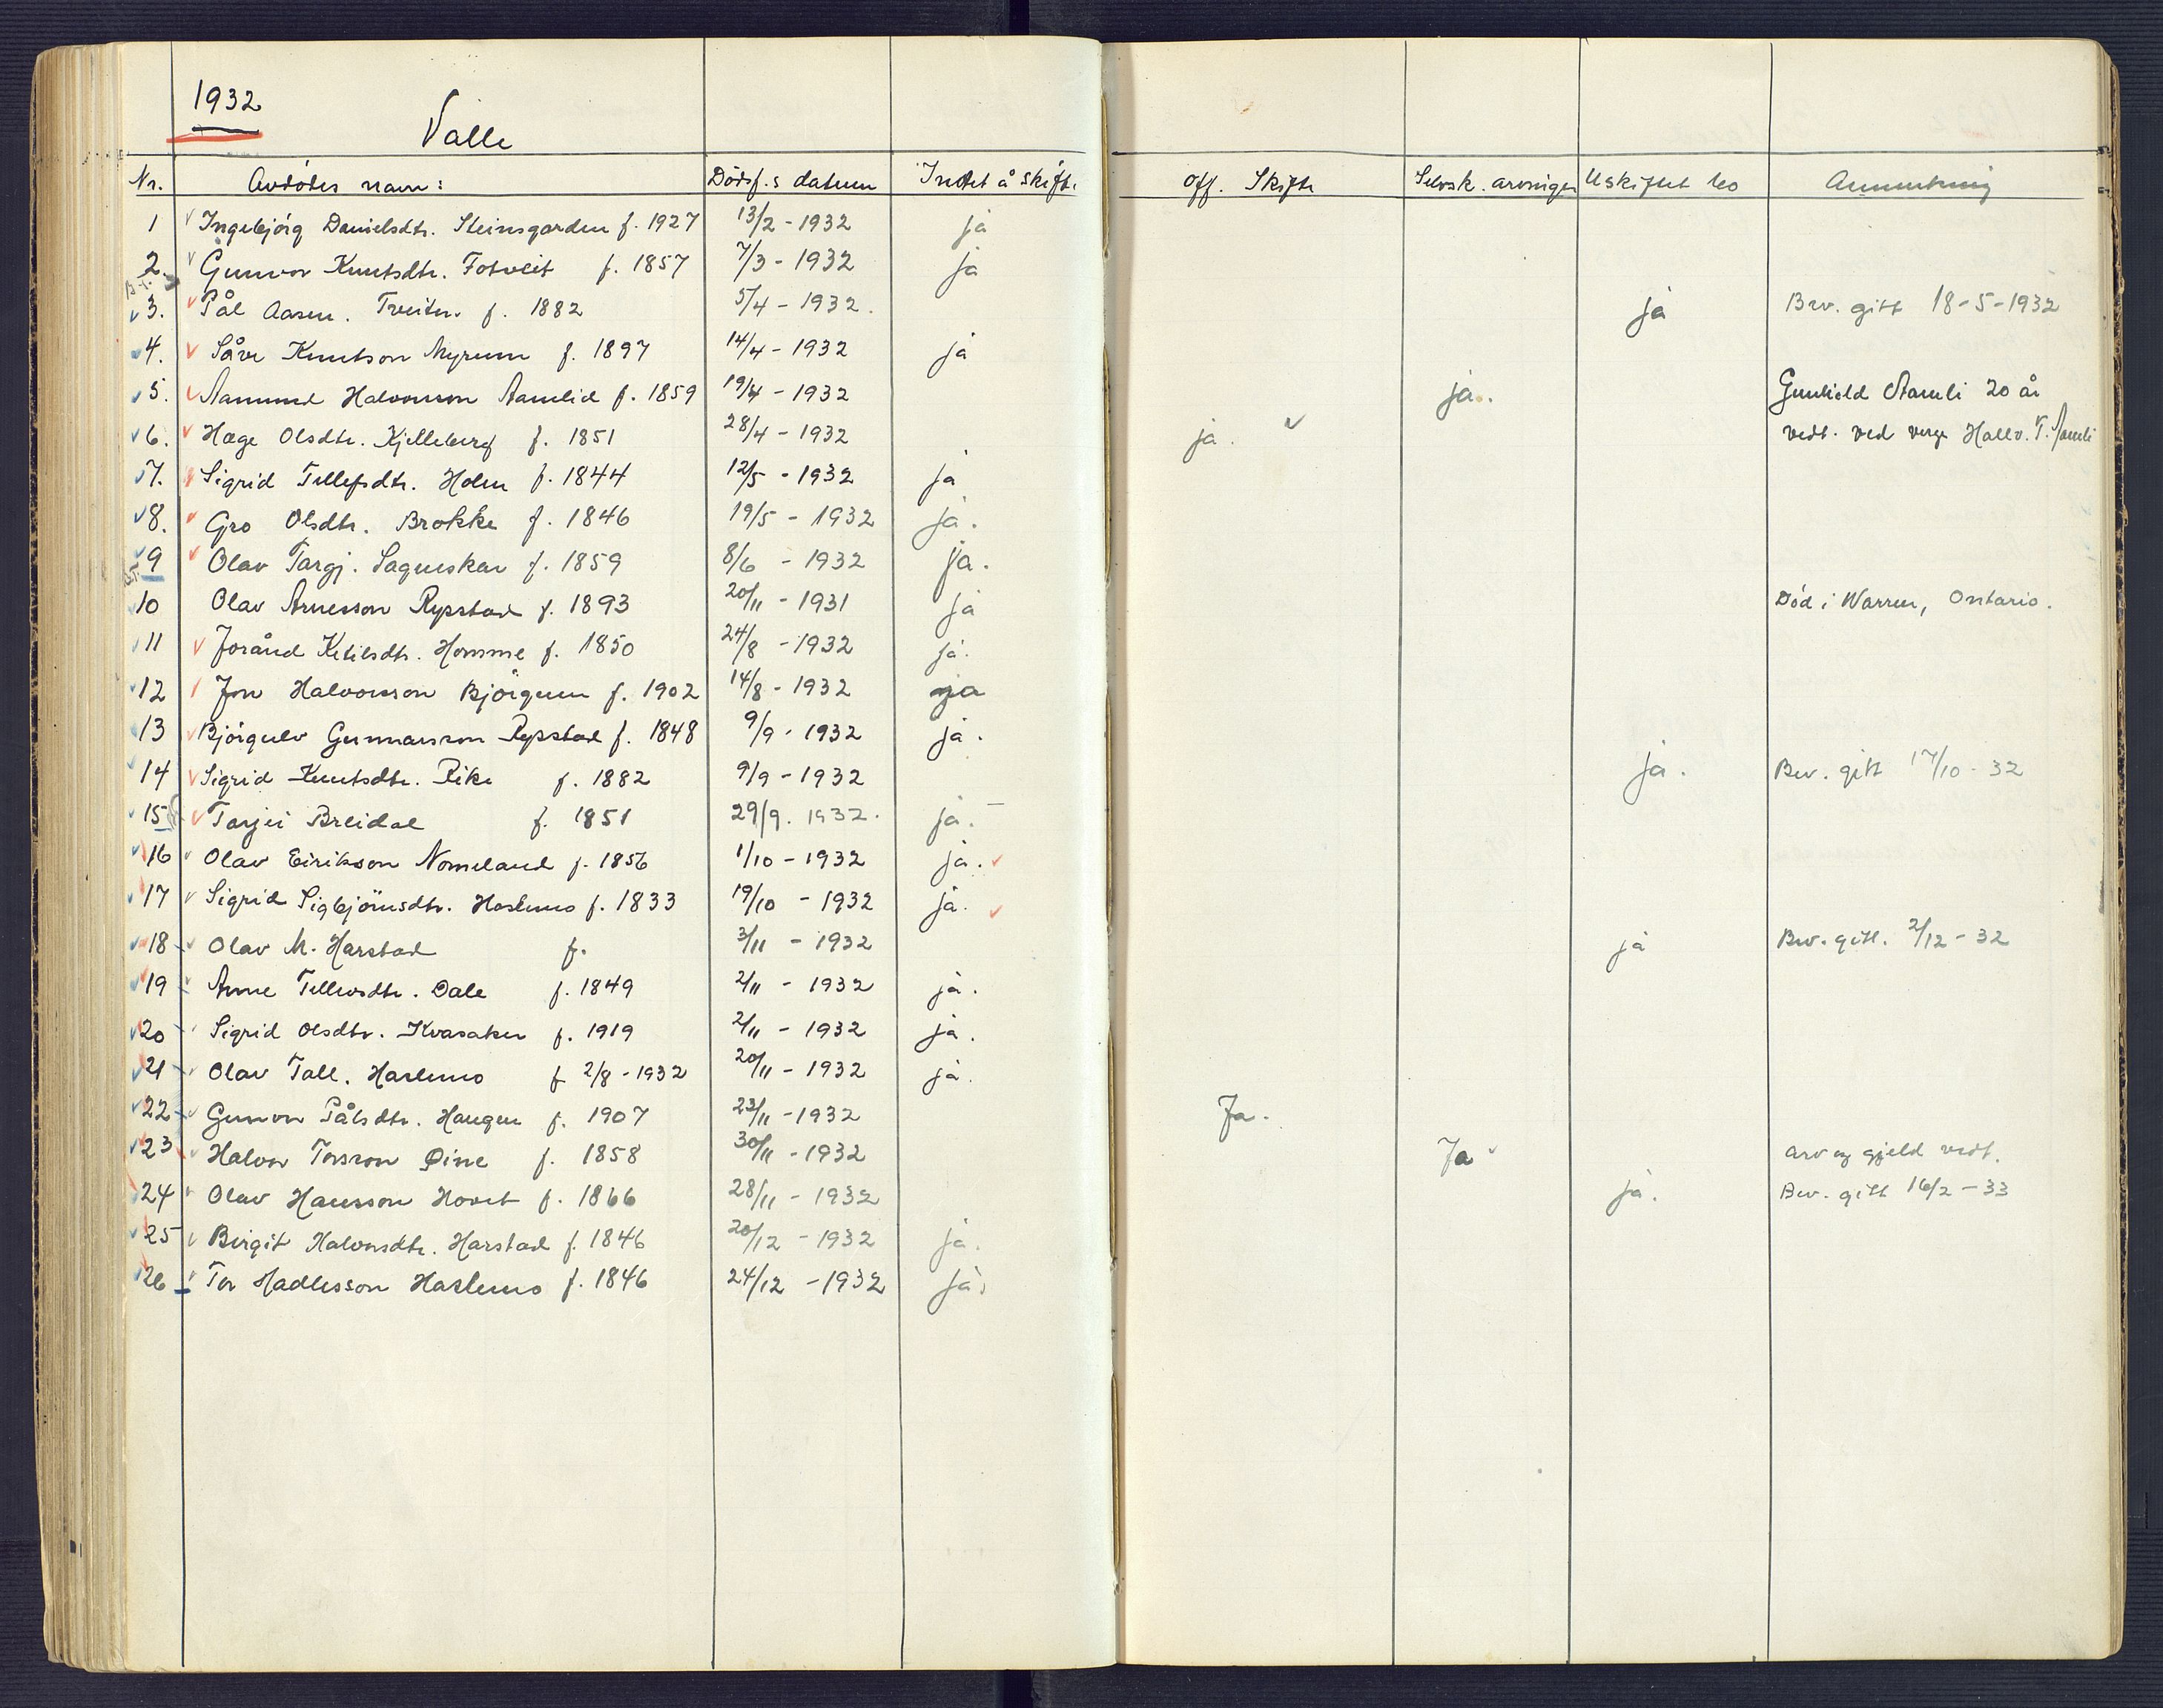 1932
Valle
Nr. Avdødes navn: Dödsf.s datum Intet å Skifte off. Skifte Selvsk. arvinger Uskiftet bo Anmerkning
1 Ingebjörg Danielsdtr. Steinsgarden f. 1927 13/2 - 1932 ja
2. Gunvor Knutsdtr. Fotveit f. 1857 7/3 - 1932 ja
3. Pål Aasen. Treiten. f. 1882 5/4 - 1932. ja Bev. gitt 18-5-1932
4. Såve Knutson Myrum f. 1897 14/4 - 1932 ja
5. Aamund Halvorson Aamlid f. 1859 19/4 - 1932 ja. Gunhild Aamli 20 år
6. Hæge Olsdtr. Kjelleberg f. 1851 28/4 - 1932 ja. vedt. ved verge Hallv. T. Aamli
7. Sigrid Tellefsdtr. Holen f. 1844 12/5 - 1932 ja
8. Gro Olsdtr. Brokke f. 1846 19/5 - 1932 ja.
9 Olav Targj. Sagneskar f. 1859 8/6 - 1932 ja.
10 Olav Arnesson Rysstad f. 1893 20/11 - 1931 ja Död i Warren, Ontario.
11 Jorånd Ketilsdtr. Homme f. 1850 24/8 - 1932 ja.
12 Jon Halvorsson Björgum f. 1902 14/8 - 1932 ja
13 Björgulv Gunnarsson Rysstad f. 1848 9/9 - 1932 ja.
14 Sigrid Knutsdtr. Rike f. 1882 9/9 - 1932 ja. Bev. gitt 17/10 - 32
15 Tarjei Breidal f. 1851 29/9. 1932. ja. -
16 Olav Eirikson Nomeland f. 1856 1/10 - 1932 ja.
17 Sigrid Sigbjörnsdtr. Haslemo f. 1833 19/10 - 1932 ja.
18 Olav M. Harstad f. 3/11 - 1932 ja Bev. gitt. 2/12 - 32
19 Anne Tellevsdtr. Dale f. 1849 2/11 - 1932 ja.
20 Sigrid Olsdtr. Kvasaker f. 1919 2/11 - 1932 ja.
21 Olav Tall. Haslemo f 2/8 - 1932 20/11 - 1932 ja.
22 Gunvor Pålsdtr. Haugen f. 1907 23/11 - 1932 Ja.
23 Halvor Torsson Øine f. 1858 30/11 - 1932 Ja arv og gjeld vedt.
24 Olav Hansson Hovet f. 1866 28/11 - 1932 ja. Bev. gitt 16/2 - 33
25 Birgit Halvorsdtr. Harstad f. 1846 20/12 - 1932 ja.
26 Tor Hadlesson Haslemo f. 1846 24/12 - 1932 ja.